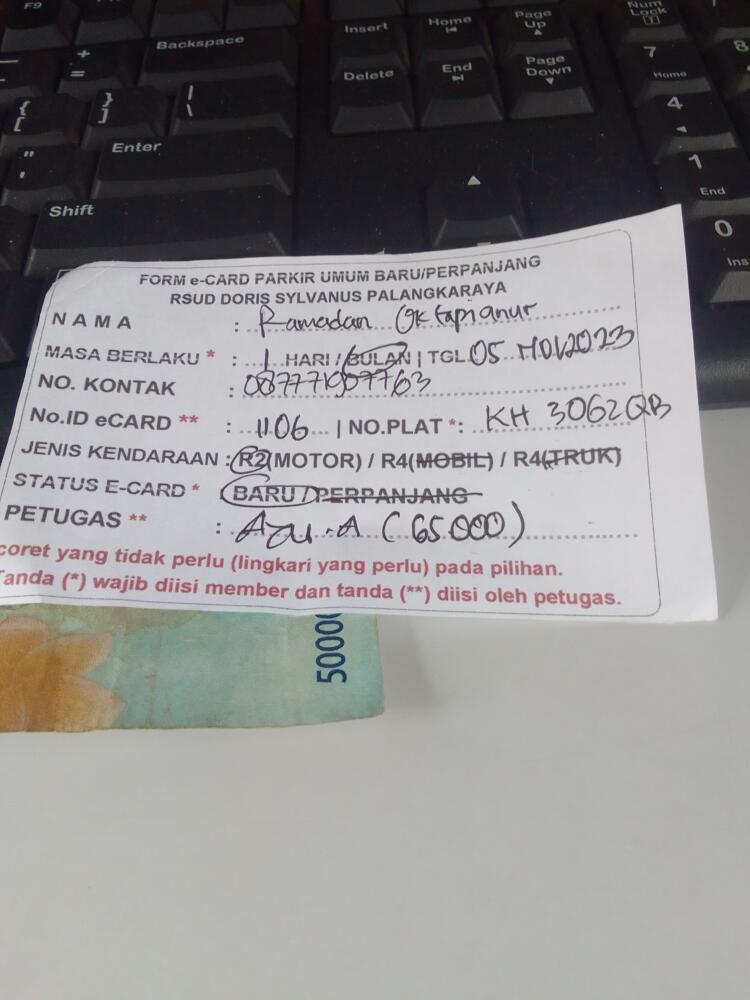 F9
Backspace
Insert
Home
Page Up
Num Lock
+
=
Delete
End
Page Down
7
Home
8
{
[
}
]
|
\
4
"
'
Enter
1
End
Shift
0
Ins
FORM e-CARD PARKIR UMUM BARU/PERPANJANG
RSUD DORIS SYLVANUS PALANGKARAYA
NAMA : Ramadan Oktapianur
MASA BERLAKU * : 1 HARI / BULAN | TGL 05 NOV 2023
NO. KONTAK :
No.ID eCARD ** : 1106 | NO.PLAT *: KH 3062QB
JENIS KENDARAAN : R2(MOTOR) / R4(MOBIL) / R4(TRUK)
STATUS E-CARD * BARU / PERPANJANG
PETUGAS ** : (65.000)
coret yang tidak perlu (lingkari yang perlu) pada pilihan.
Tanda (*) wajib diisi member dan tanda (**) diisi oleh petugas.
50000